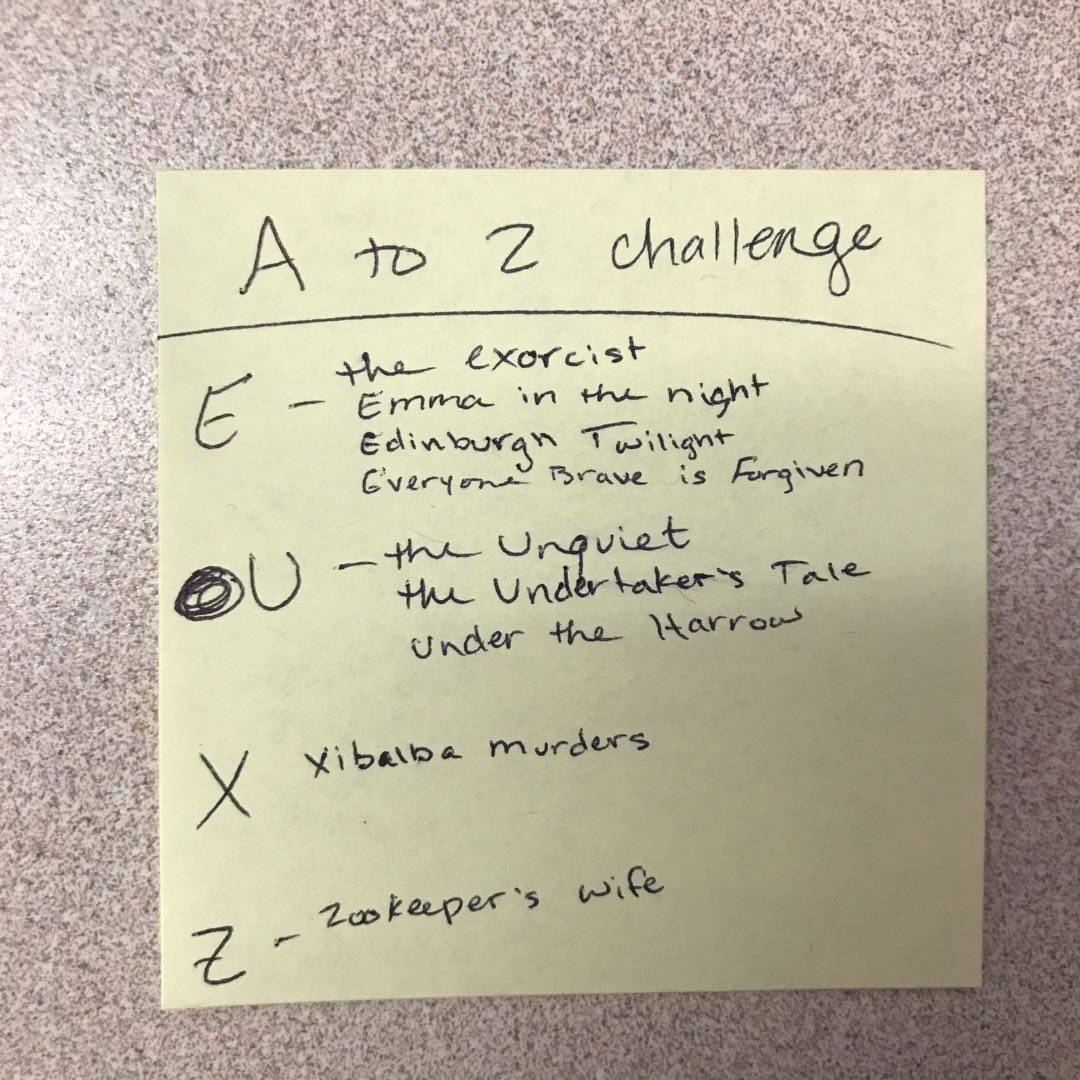 A to Z challenge
E - the exorcist
Emma in the night
Edinburgh Twilight
Everyone Brave is Forgiven
U - the Unquiet
the Undertaker's Tale
under the Harrow
X Xibalba murders
Z - Zookeeper's wife